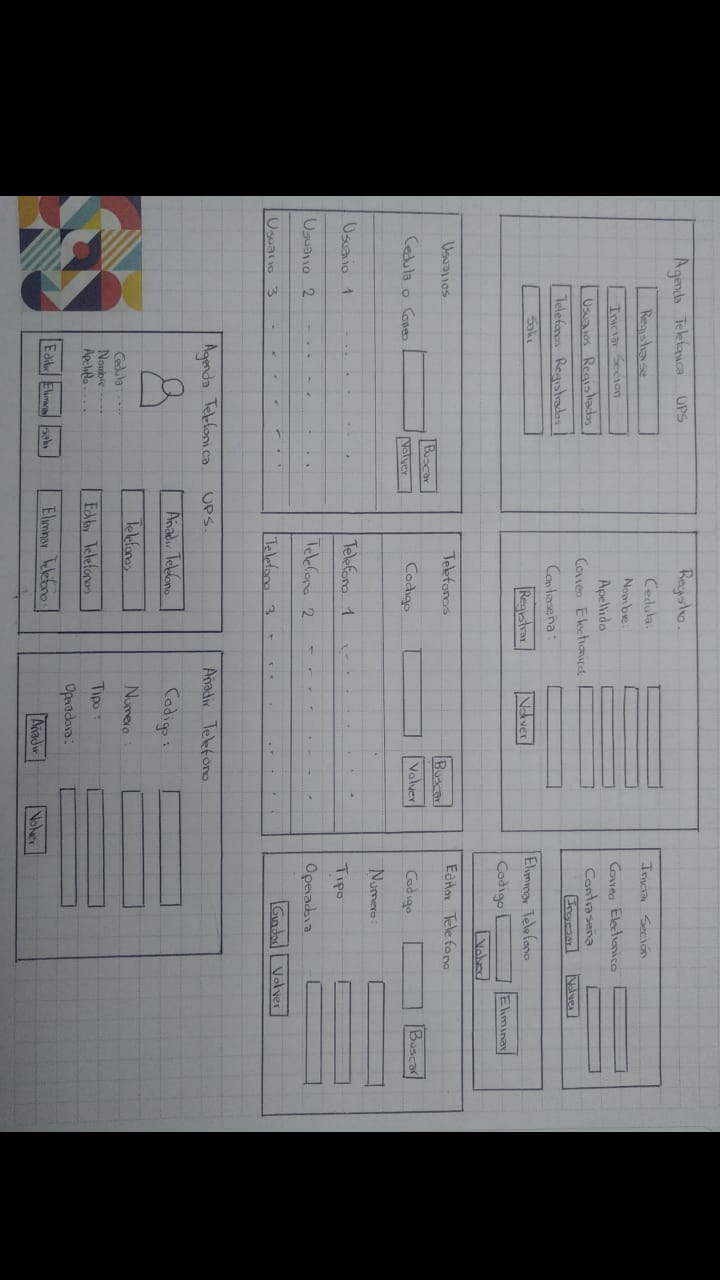 Agenda Telefonica UPS
Registrarse
Iniciar Seccion
Usuarios Registrados
Telefonos Registrados
Salir
Registro.
Cedula:
Nombre:
Apellido
Correo Electronico
Contraseña:
Registrar Volver
Iniciar Sección
Correo Electronico
Contraseña
Ingresar Volver
Eliminar Telefono
Codigo Eliminar
Volver
Usuarios
Cedula o Correo Buscar
Volver
Usuario 1
Usuario 2
Usuario 3
Telefonos
Codigo Buscar
Volver
Telefono 1
Telefono 2
Telefono 3
Editar Telefono
Codigo Buscar
Numero:
Tipo
Operadora
Guardar Volver
Agenda Telefonica UPS.
Cedula: ....
Nombre ....
Apellido ....
Editar Eliminar Salir
Añadir Telefono
Telefonos
Editar Telefonos
Eliminar Telefono.
Añadir Telefono
Codigo:
Numero:
Tipo:
Opradora:
Añadir Volver